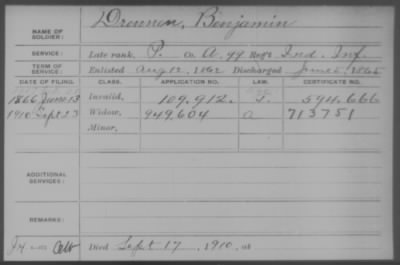 NAME OF SOLDIER: Drennen, Benjamin
SERVICE: Late rank, P. Co. A, 99 Reg't Ind. Inf.
TERM OF SERVICE: Enlisted Aug 12, 1862 Discharged June 5, 1865
DATE OF FILING. CLASS. APPLICATION NO. LAW. CERTIFICATE NO.
1866 June 13 Invalid, 109.912. 594.666
1910 Sept 23 Widow, 949,604 a 713751
Minor,
ADDITIONAL SERVICES:
REMARKS:
Died Sept 17, 1910, at